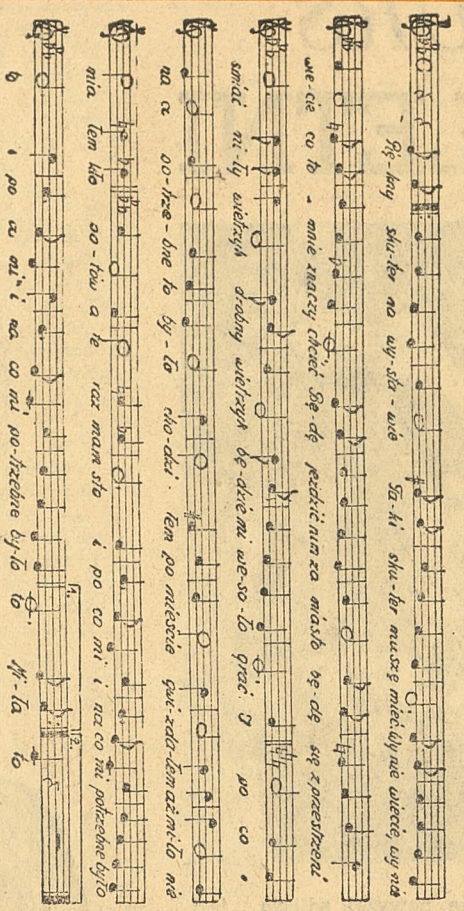 Pię-kny sku-ter na wy-sta-wie Ta-ki sku-ter muszę mieć. Wy nie wiecie, wy nie
wie-cie co to - mnie znaczy chcieć Bę-dę jeździć nim za miasto bę-dę się z przestrzeni
śmiać mi-ły wietrzyk drobny wietrzyk bę-dzie mi we-so-ło grać I po co
na co po-trze-bne to by-ło cho-dzi - łem po mieście gwi-zda-łem aż mi-ło nie
mia łem kło po-tów a te raz mam sto i po co mi i na co mi potrzebne było
to i po co mi i na co mi po-trzebne by-ło to Mi-ła to
1. 2.